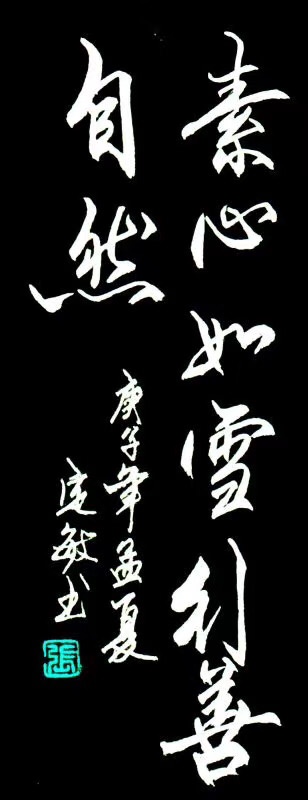 素心如雪行善
自然
庚子年孟夏
敏书
張